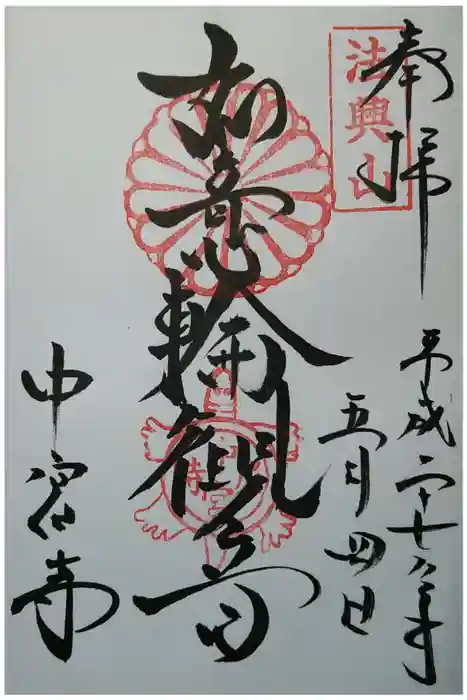 奉拝
法興山
平成二十七年
五月四日
如意輪観音
中宮寺